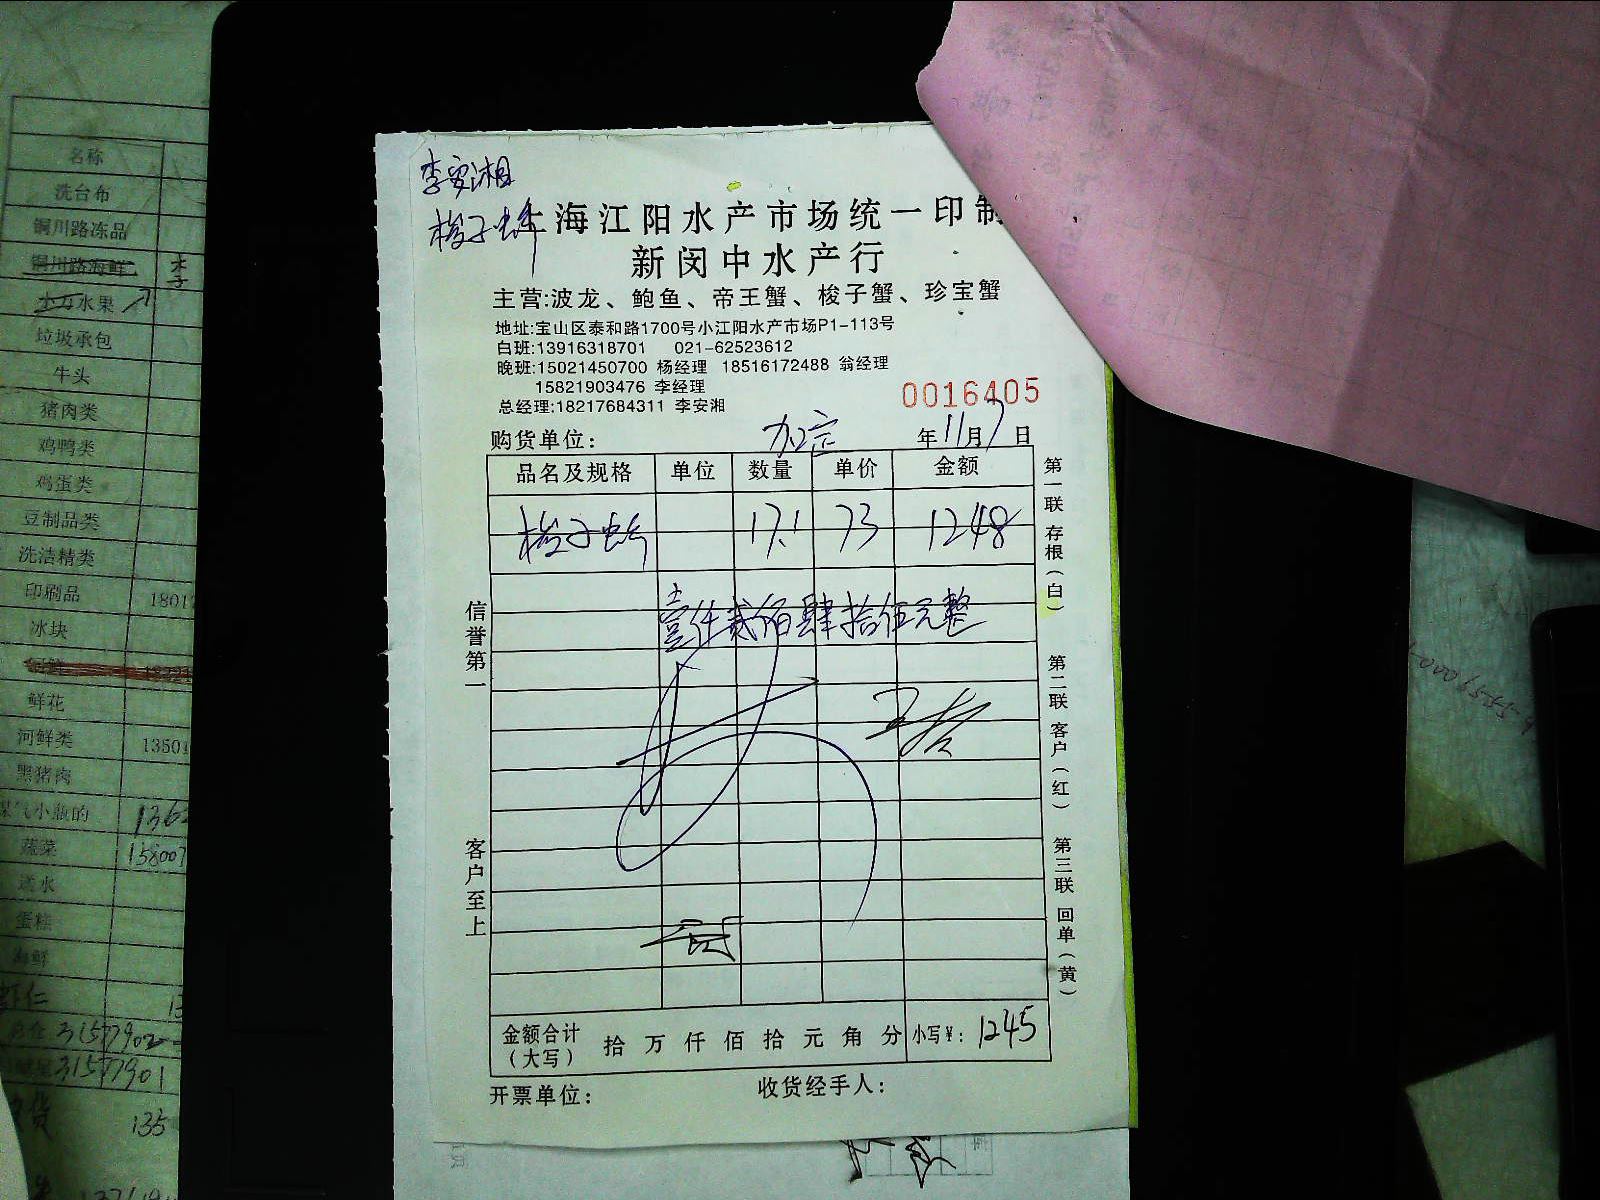 李安湘
梭子蚌
海江阳水产市场统一印制
新闵中水产行
主营:波龙、鲍鱼、帝王蟹、梭子蟹、珍宝蟹
地址:宝山区泰和路1700号小江阳水产市场P1-113号
白班:13916318701 021-62523612
晚班:15021450700 杨经理 18516172488 翁经理
15821903476 李经理
总经理:18217684311 李安湘
0016405
购货单位: 年11月7日
品名及规格 单位 数量 单价 金额
梭子 17.1 73 1248
壹仟贰佰肆拾伍元整
金额合计(大写) 拾 万 仟 佰 拾 元 角 分 小写¥: 1245
开票单位: 收货经手人:
信誉第一
客户至上
第一联 存根(白)
第二联 客户(红)
第三联 回单(黄)
名称
洗台布
铜川路冻品
铜川路海鲜 李
水果
垃圾承包
牛头
猪肉类
鸡鸭类
鸡蛋类
豆制品类
洗洁精类
印刷品 1801
冰块
鲜花
河鲜类 1350
黑猪肉
煤气小瓶的 136
蔬菜 158007
送水
蛋糕
海鲜
虾仁 13
31577902
31577901
货 135